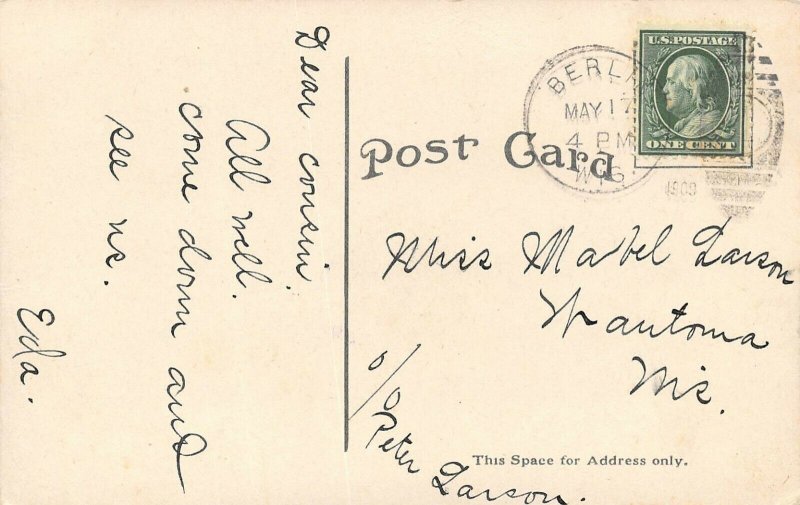 Dear cousin.
All well.
come down and
see us.
Eda.
Post Card
U.S. POSTAGE
ONE CENT
MAY 17
4 PM
WIS.
Miss Mabel Larson
Wautoma
Wis.
c/o
Peter Larson.
This Space for Address only.